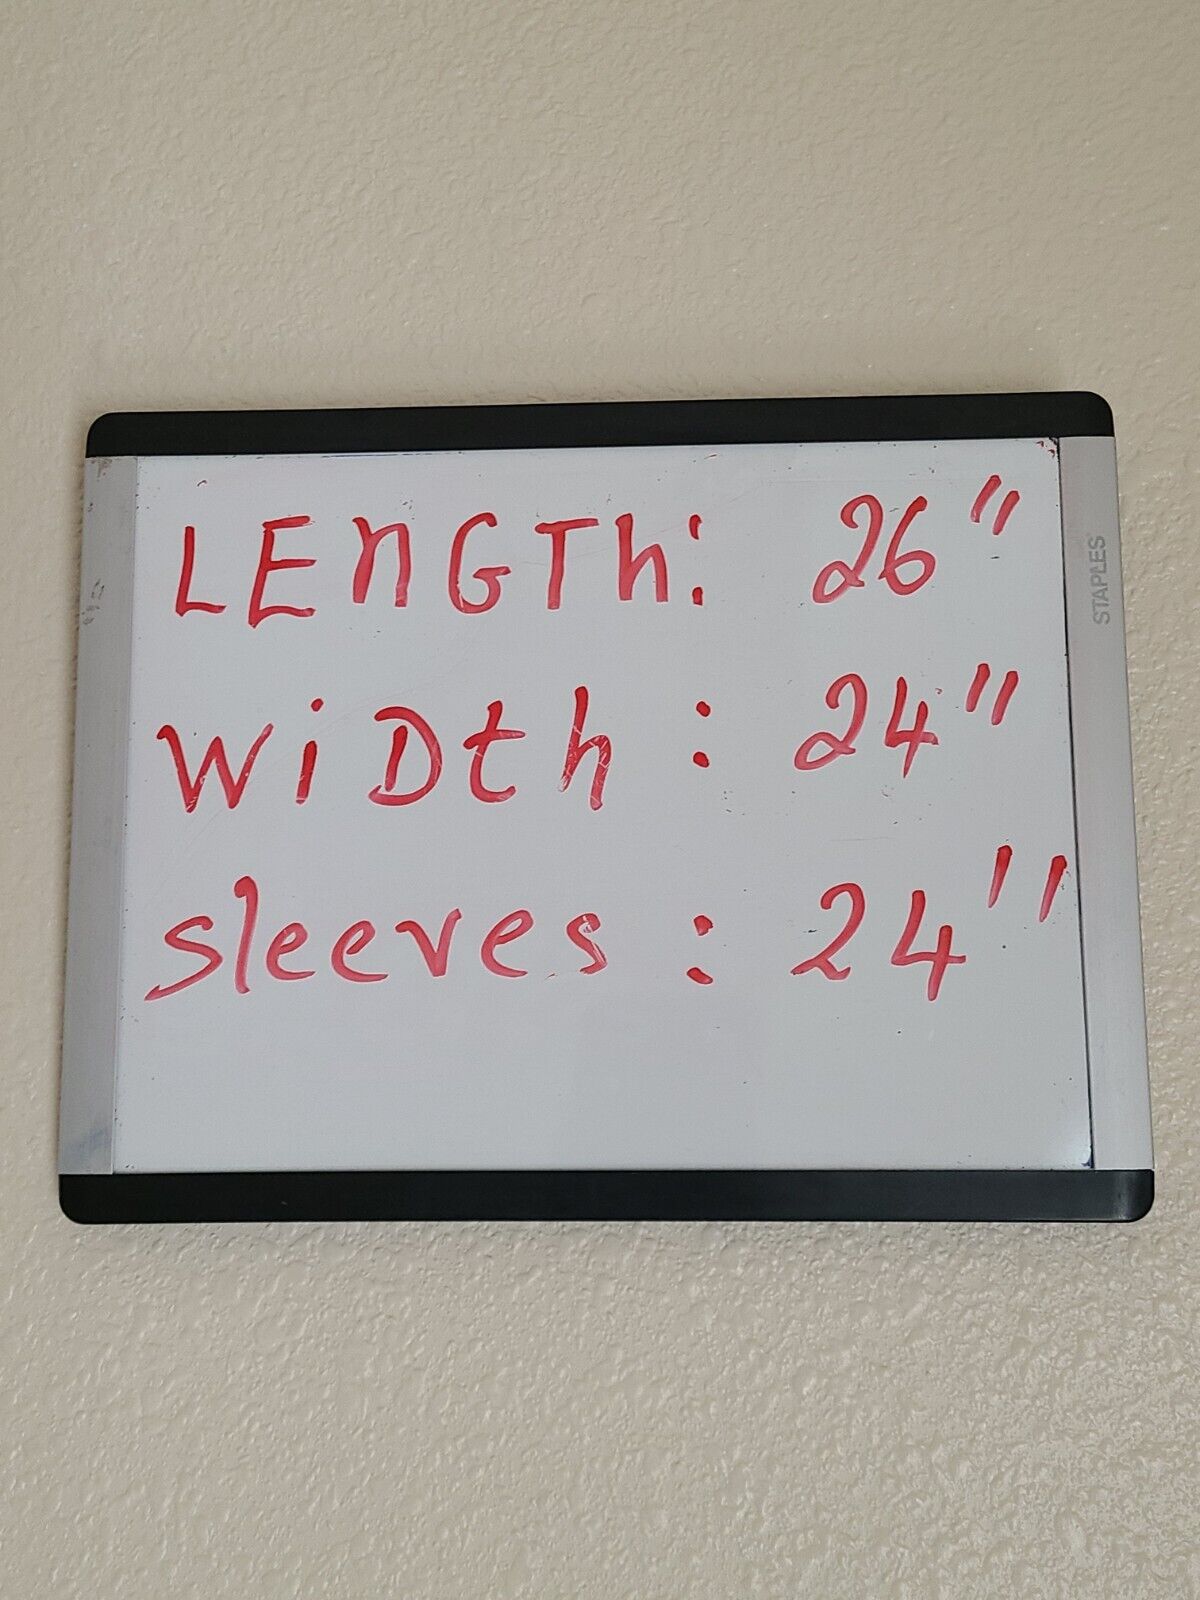 LEnGTh: 26"
WiDth : 24"
sleeves : 24"
STAPLES